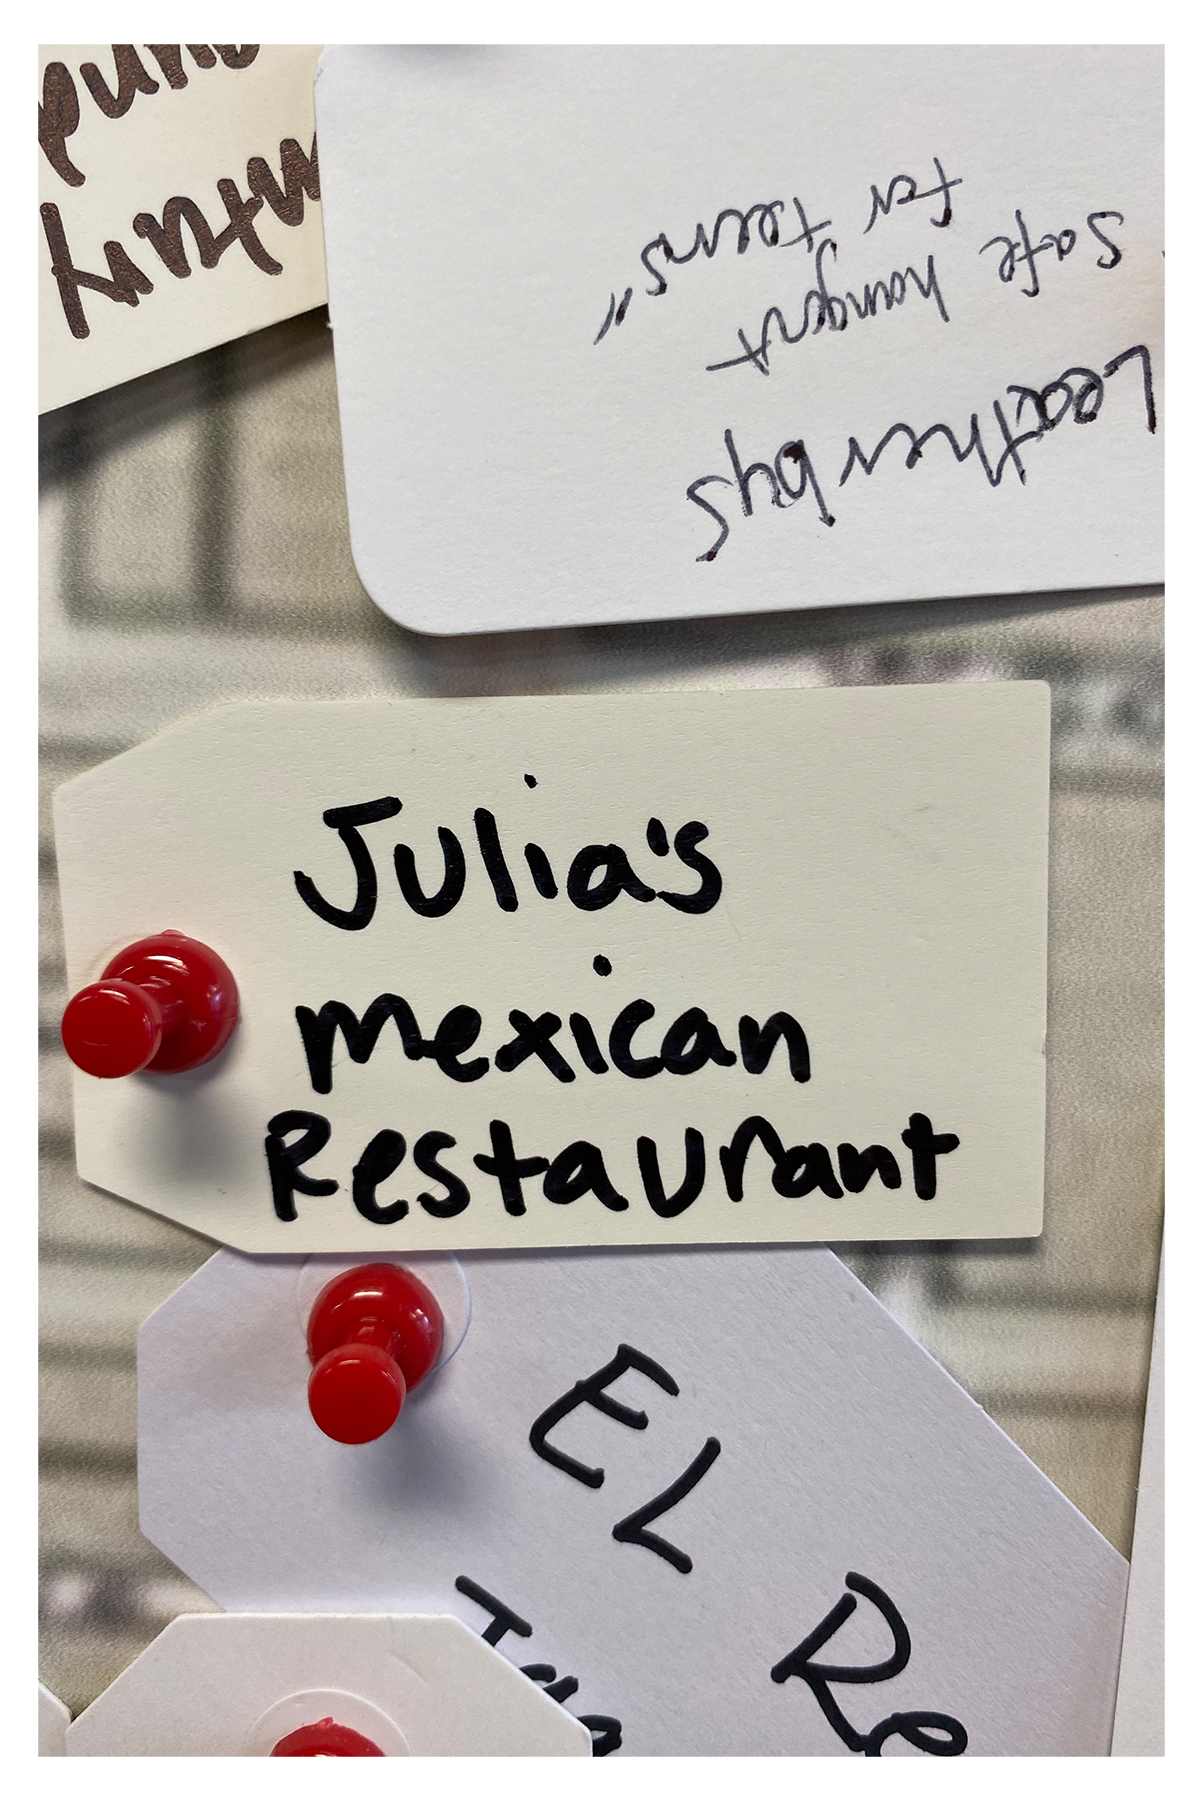 Leatherbys
safe hangout
for teens"
Julia's
mexican
Restaurant
EL